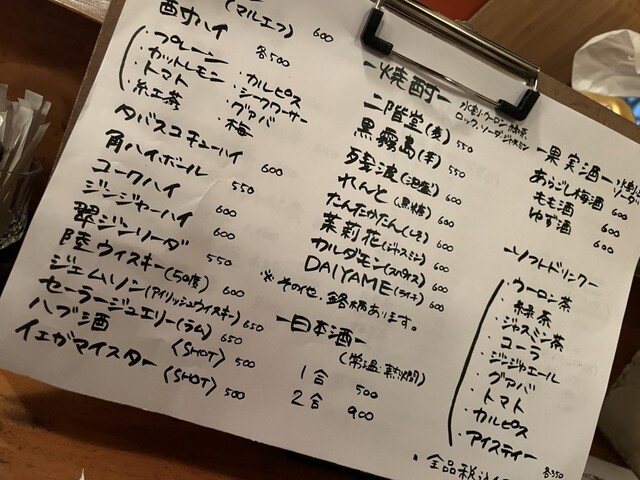 (マルエフ) 600
酎ハイ 各500
・プレーン
・カットレモン ・カルピス
・トマト ・シークワーサー
・紅茶 ・グァバ
・梅
タバスコチューハイ 600
角ハイボール 550
コークハイ 600
ジンジャーハイ 600
翠ジンソーダ 550
陸ウィスキー(50度) 600
ジェムソン(アイリッシュウイスキー) 650
セーラージェリー(ラム) 650
ハブ酒 〈SHOT〉 500
イエガマイスター 〈SHOT〉 500
ー焼酎ー
水割、ウーロン、緑茶
ロック、ソーダ、ジャスミン
二階堂(麦) 550
黒霧島(芋) 550
残波(泡盛) 600
れんと(黒糖) 600
たんたかたん(しそ) 600
茉莉花(ジャスミン) 600
カルダモン(スパイス) 600
DAIYAME(ライチ) 600
※その他、銘柄あります。
ー日本酒ー
(常温・熱燗)
1合 500
2合 900
ー果実酒ー
あらごし梅酒 600
もも酒 600
ゆず酒 600
ーソフトドリンクー
・ウーロン茶
・緑茶
・ジャスミン茶
・コーラ
・ジンジャエール
・グァバ
・トマト
・カルピス
・アイスティー
各350
・全品税込